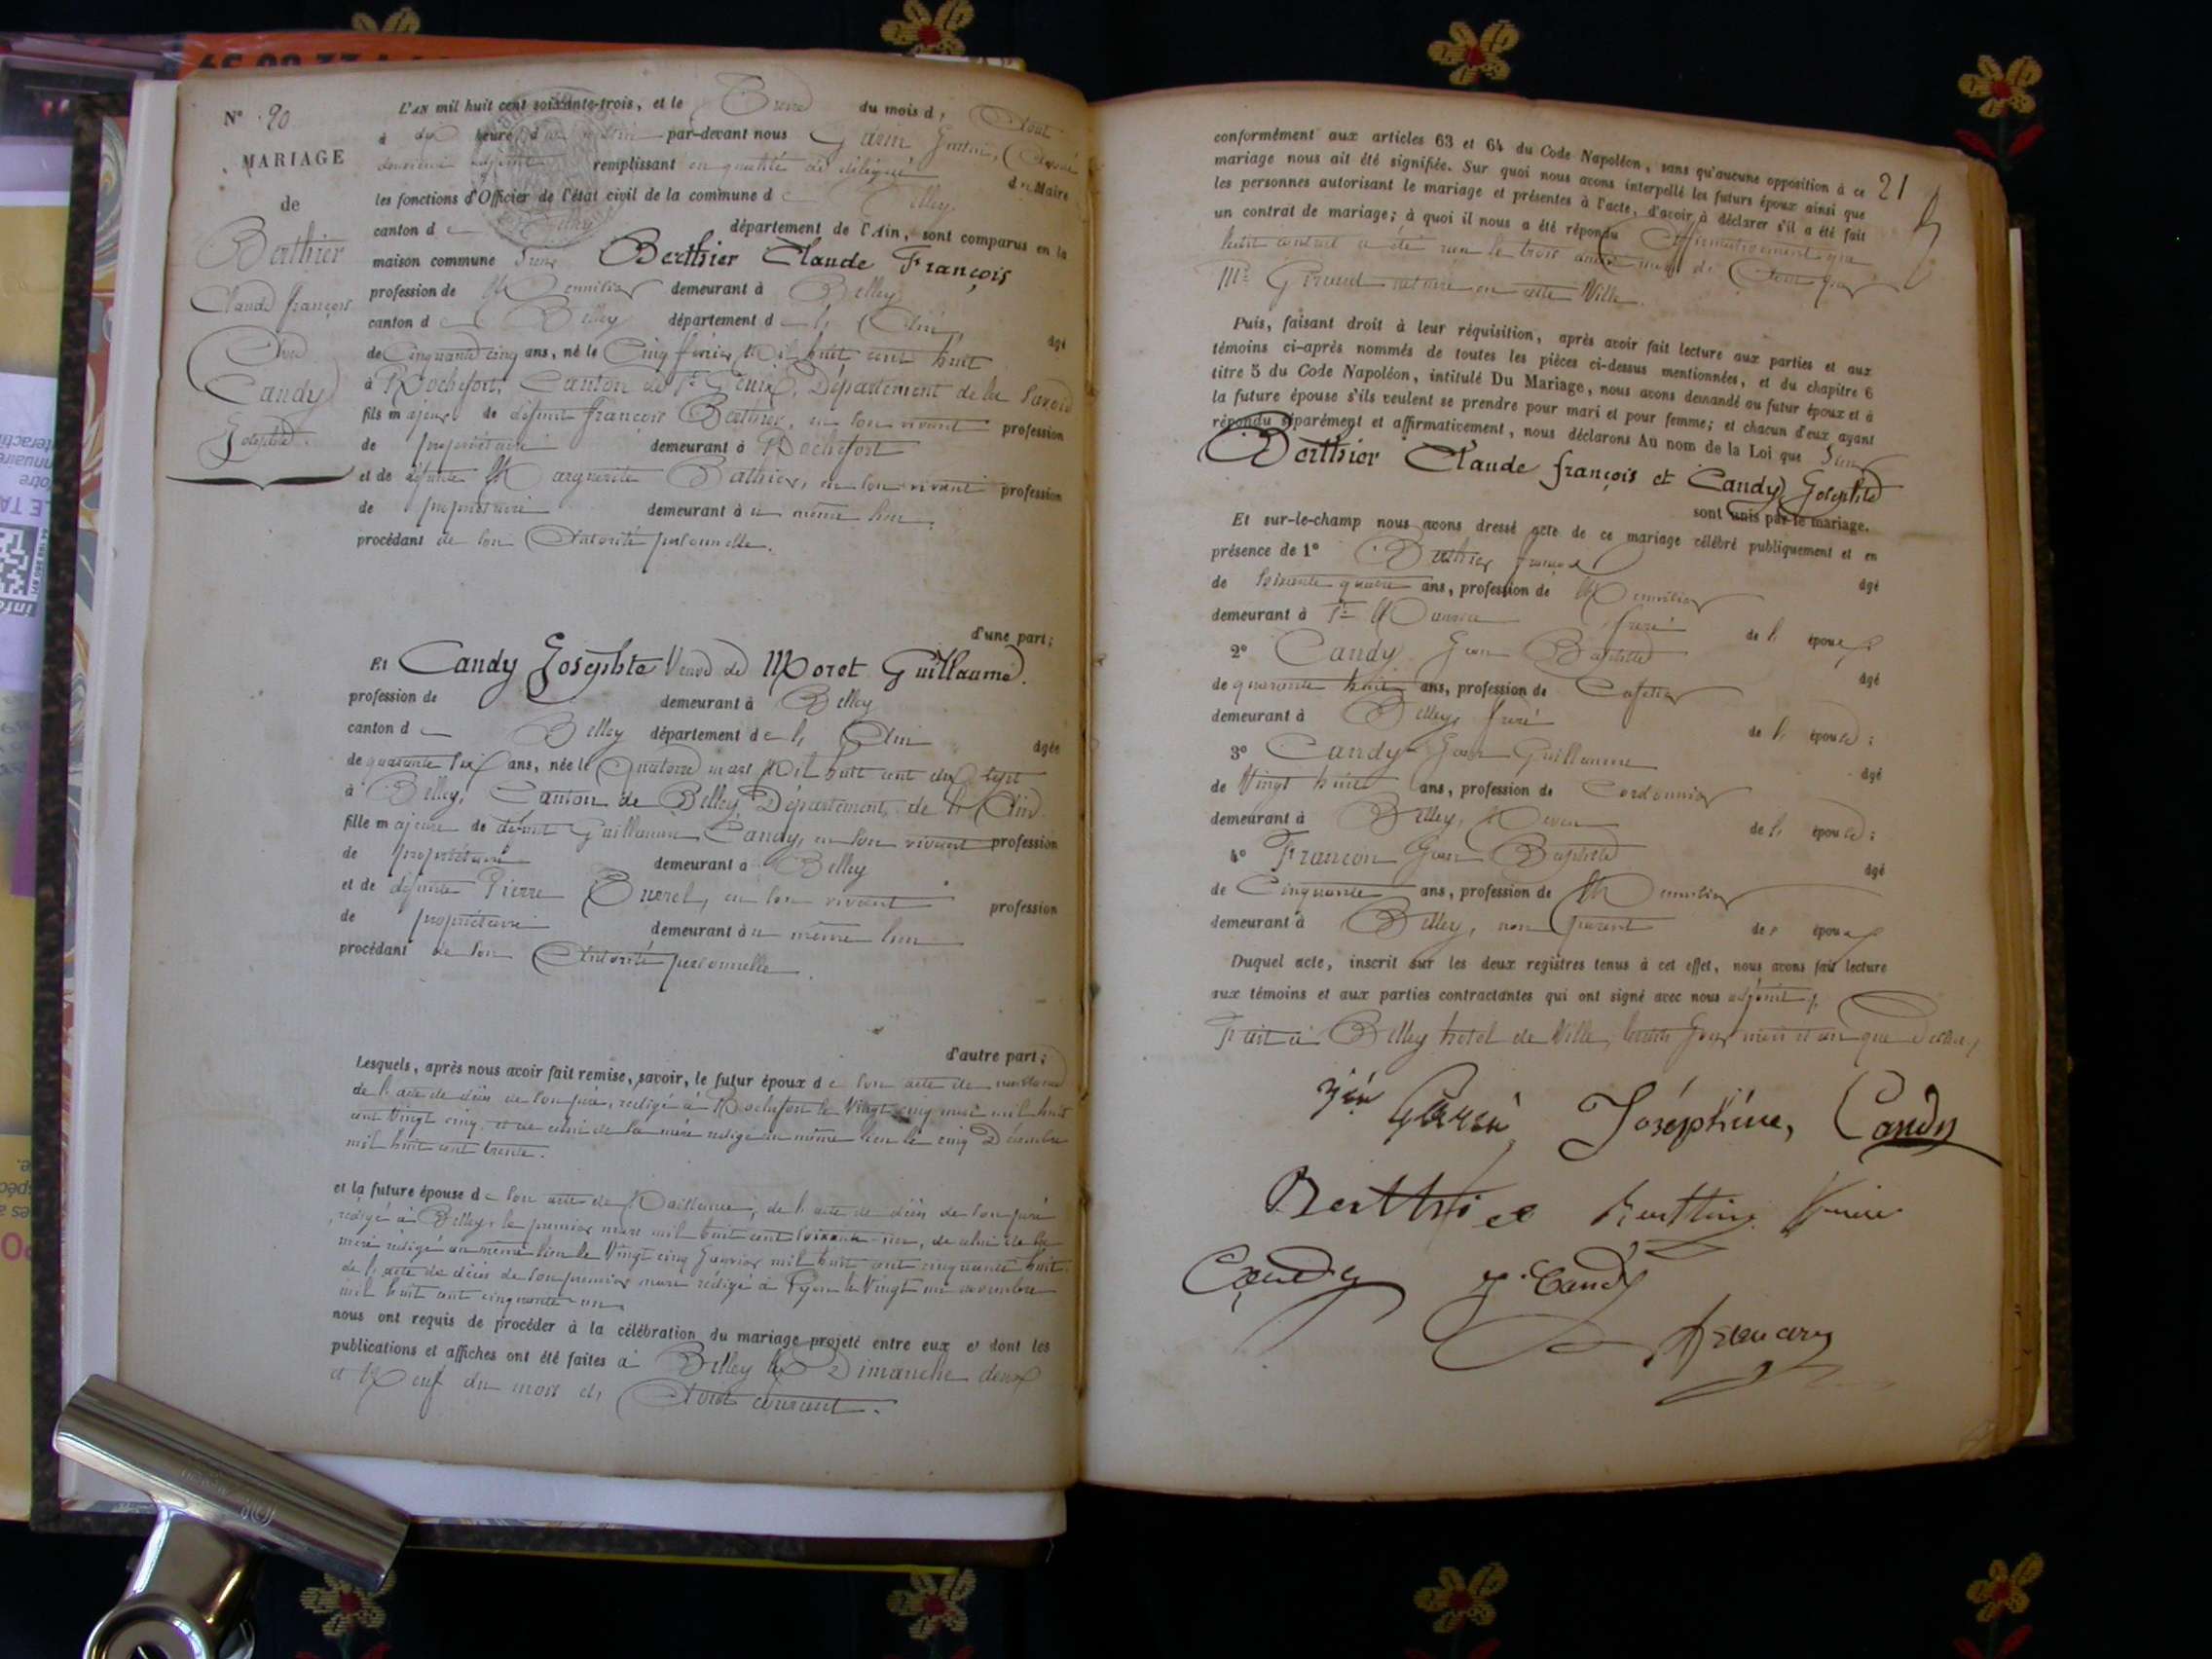 N° 20
MARIAGE
de
Berthier
Claude françois
Avec
Candy
Josephte
L'an mil huit cent soixante-trois, et le Treize du mois d' Aout
à dix heures d par-devant nous Garin
deuxième adjoint remplissant en qualité de délégué du Maire
les fonctions d'Officier de l'état civil de la commune de Belley
canton de Belley département de l'Ain, sont comparus en la
maison commune Sieur Berthier Claude François
profession de Menuisier demeurant à Belley
canton de Belley département de l'Ain, âgé
de Cinquante cinq ans, né le Cinq février Mil huit cent huit
à Rochefort, Canton de St Genix, Département de la Savoie
fils majeur de défunt françois Berthier, en son vivant profession
de propriétaire demeurant à Rochefort
et de défunte Marguerite Berthier, en son vivant profession
de propriétaire demeurant au même lieu,
procédant de son Autorité personnelle.
d'une part;
Et Candy Josephte Veuve de Moret Guillaume.
profession de demeurant à Belley
canton de Belley département de l'Ain âgée
de quarante six ans, née le Quatorze mars Mil huit cent dix sept
à Belley, Canton de Belley Département de l'Ain
fille majeure de défunt Guillaume Candy, en son vivant profession
de propriétaire demeurant à Belley
et de défunte Pierre Burrel, en son vivant profession
de propriétaire demeurant au même lieu
procédant de son Autorité personnelle.
d'autre part;
Lesquels, après nous avoir fait remise, savoir, le futur époux de son acte de naissance
de l'acte de décès de son père, rédigé à Rochefort le Vingt cinq mil huit
cent Vingt cinq, et de celui de sa mère rédigé au même lieu le cinq Décembre
mil huit cent trente.
et la future épouse de son acte de Naissance, de l'acte de décès de son père
rédigé à Belley, le premier mars mil huit cent soixante un, de celui de sa
mère rédigé au même lieu le Vingt cinq Janvier mil huit cent cinquante huit
de l'acte de décès de son premier mari rédigé à Lyon le Vingt un novembre
mil huit cent cinquante un
nous ont requis de procéder à la célébration du mariage projeté entre eux et dont les
publications et affiches ont été faites à Belley les Dimanche deux
et Neuf du mois d' Aout courant.
21
conformément aux articles 63 et 64 du Code Napoléon, sans qu'aucune opposition à ce
mariage nous ait été signifiée. Sur quoi nous avons interpellé les futurs époux ainsi que
les personnes autorisant le mariage et présentes à l'acte, d'avoir à déclarer s'il a été fait
un contrat de mariage; à quoi il nous a été répondu Affirmativement que
ledit contrat a été reçu le trois du mois de Aout par
Me Giraud notaire en cette Ville.
Puis, faisant droit à leur réquisition, après avoir fait lecture aux parties et aux
témoins ci-après nommés de toutes les pièces ci-dessus mentionnées, et du chapitre 6
titre 5 du Code Napoléon, intitulé Du Mariage, nous avons demandé au futur époux et à
la future épouse s'ils veulent se prendre pour mari et pour femme; et chacun d'eux ayant
répondu séparément et affirmativement, nous déclarons Au nom de la Loi que Sieur
Berthier Claude françois et Candy Josephte
sont unis par le mariage.
Et sur-le-champ nous avons dressé acte de ce mariage célébré publiquement et en
présence de 1° Berthier françois âgé
de soixante quatre ans, profession de Menuisier
demeurant à frère de l'époux
2° Candy Jean Baptiste âgé
de quarante huit ans, profession de Cafetier
demeurant à Belley, frère de l'épouse;
3° Candy Jean Guillaume âgé
de Vingt huit ans, profession de Cordonnier
demeurant à Belley, Neveu de l'épouse;
4° Francon Jean Baptiste âgé
de Cinquante ans, profession de Menuisier
demeurant à Belley, non parent des époux
Duquel acte, inscrit sur les deux registres tenus à cet effet, nous avons fait lecture
aux témoins et aux parties contractantes qui ont signé avec nous adjoint
Fait à Belley hotel de Ville, lesdits jour mois et an que dessus,
Garin Joséphine, Candy
Berthier
Candy J. Candy